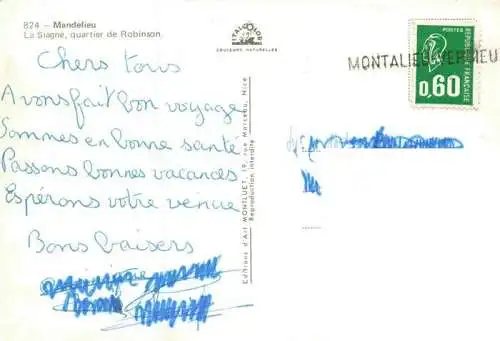 824 — Mandelieu
La Siagne, quartier de Robinson.
COULEURS NATURELLES
POSTES
REPUBLIQUE FRANÇAISE
0,60
MONTALIEU-VERCIEU
Chers tous
Avons fait bon voyage
Sommes en bonne santé
Passons bonnes vacances
Espérons votre venue
Bons baisers
Editions d'Art MONTLUET, 19, rue Marceau, Nice
Reproduction interdite